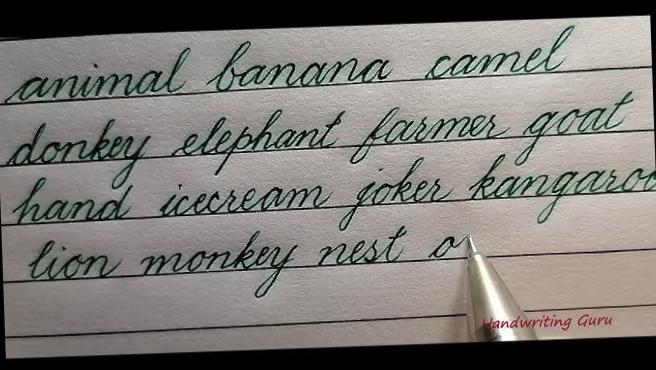 animal banana camel
donkey elephant farmer goat
hand icecream joker kangaroo
lion monkey nest o
Handwriting Guru